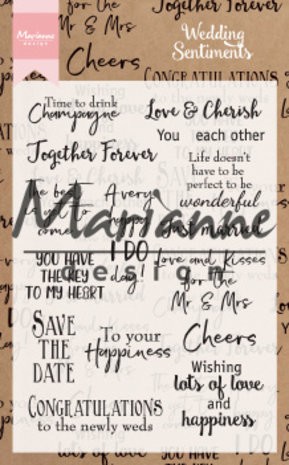 Marianne
design
Wedding
Sentiments
Together Forever
for the
Mr & Mrs
Cheers
CONGRATULATIONS
Time to drink
Champagne
Love & Cherish
You each other
Together Forever
Life doesn't
have to be
perfect to be
wonderful
The best
A very
happy
Marianne
design
Just married
I DO
day!
YOU HAVE
THE KEY
TO MY HEART
Love and Kisses
for the
Mr & Mrs
SAVE
THE
DATE
To your
Happiness
Cheers
Wishing
lots of love
and
happiness
CONGRATULATIONS
to the newly weds
YOU HAVE
I DO